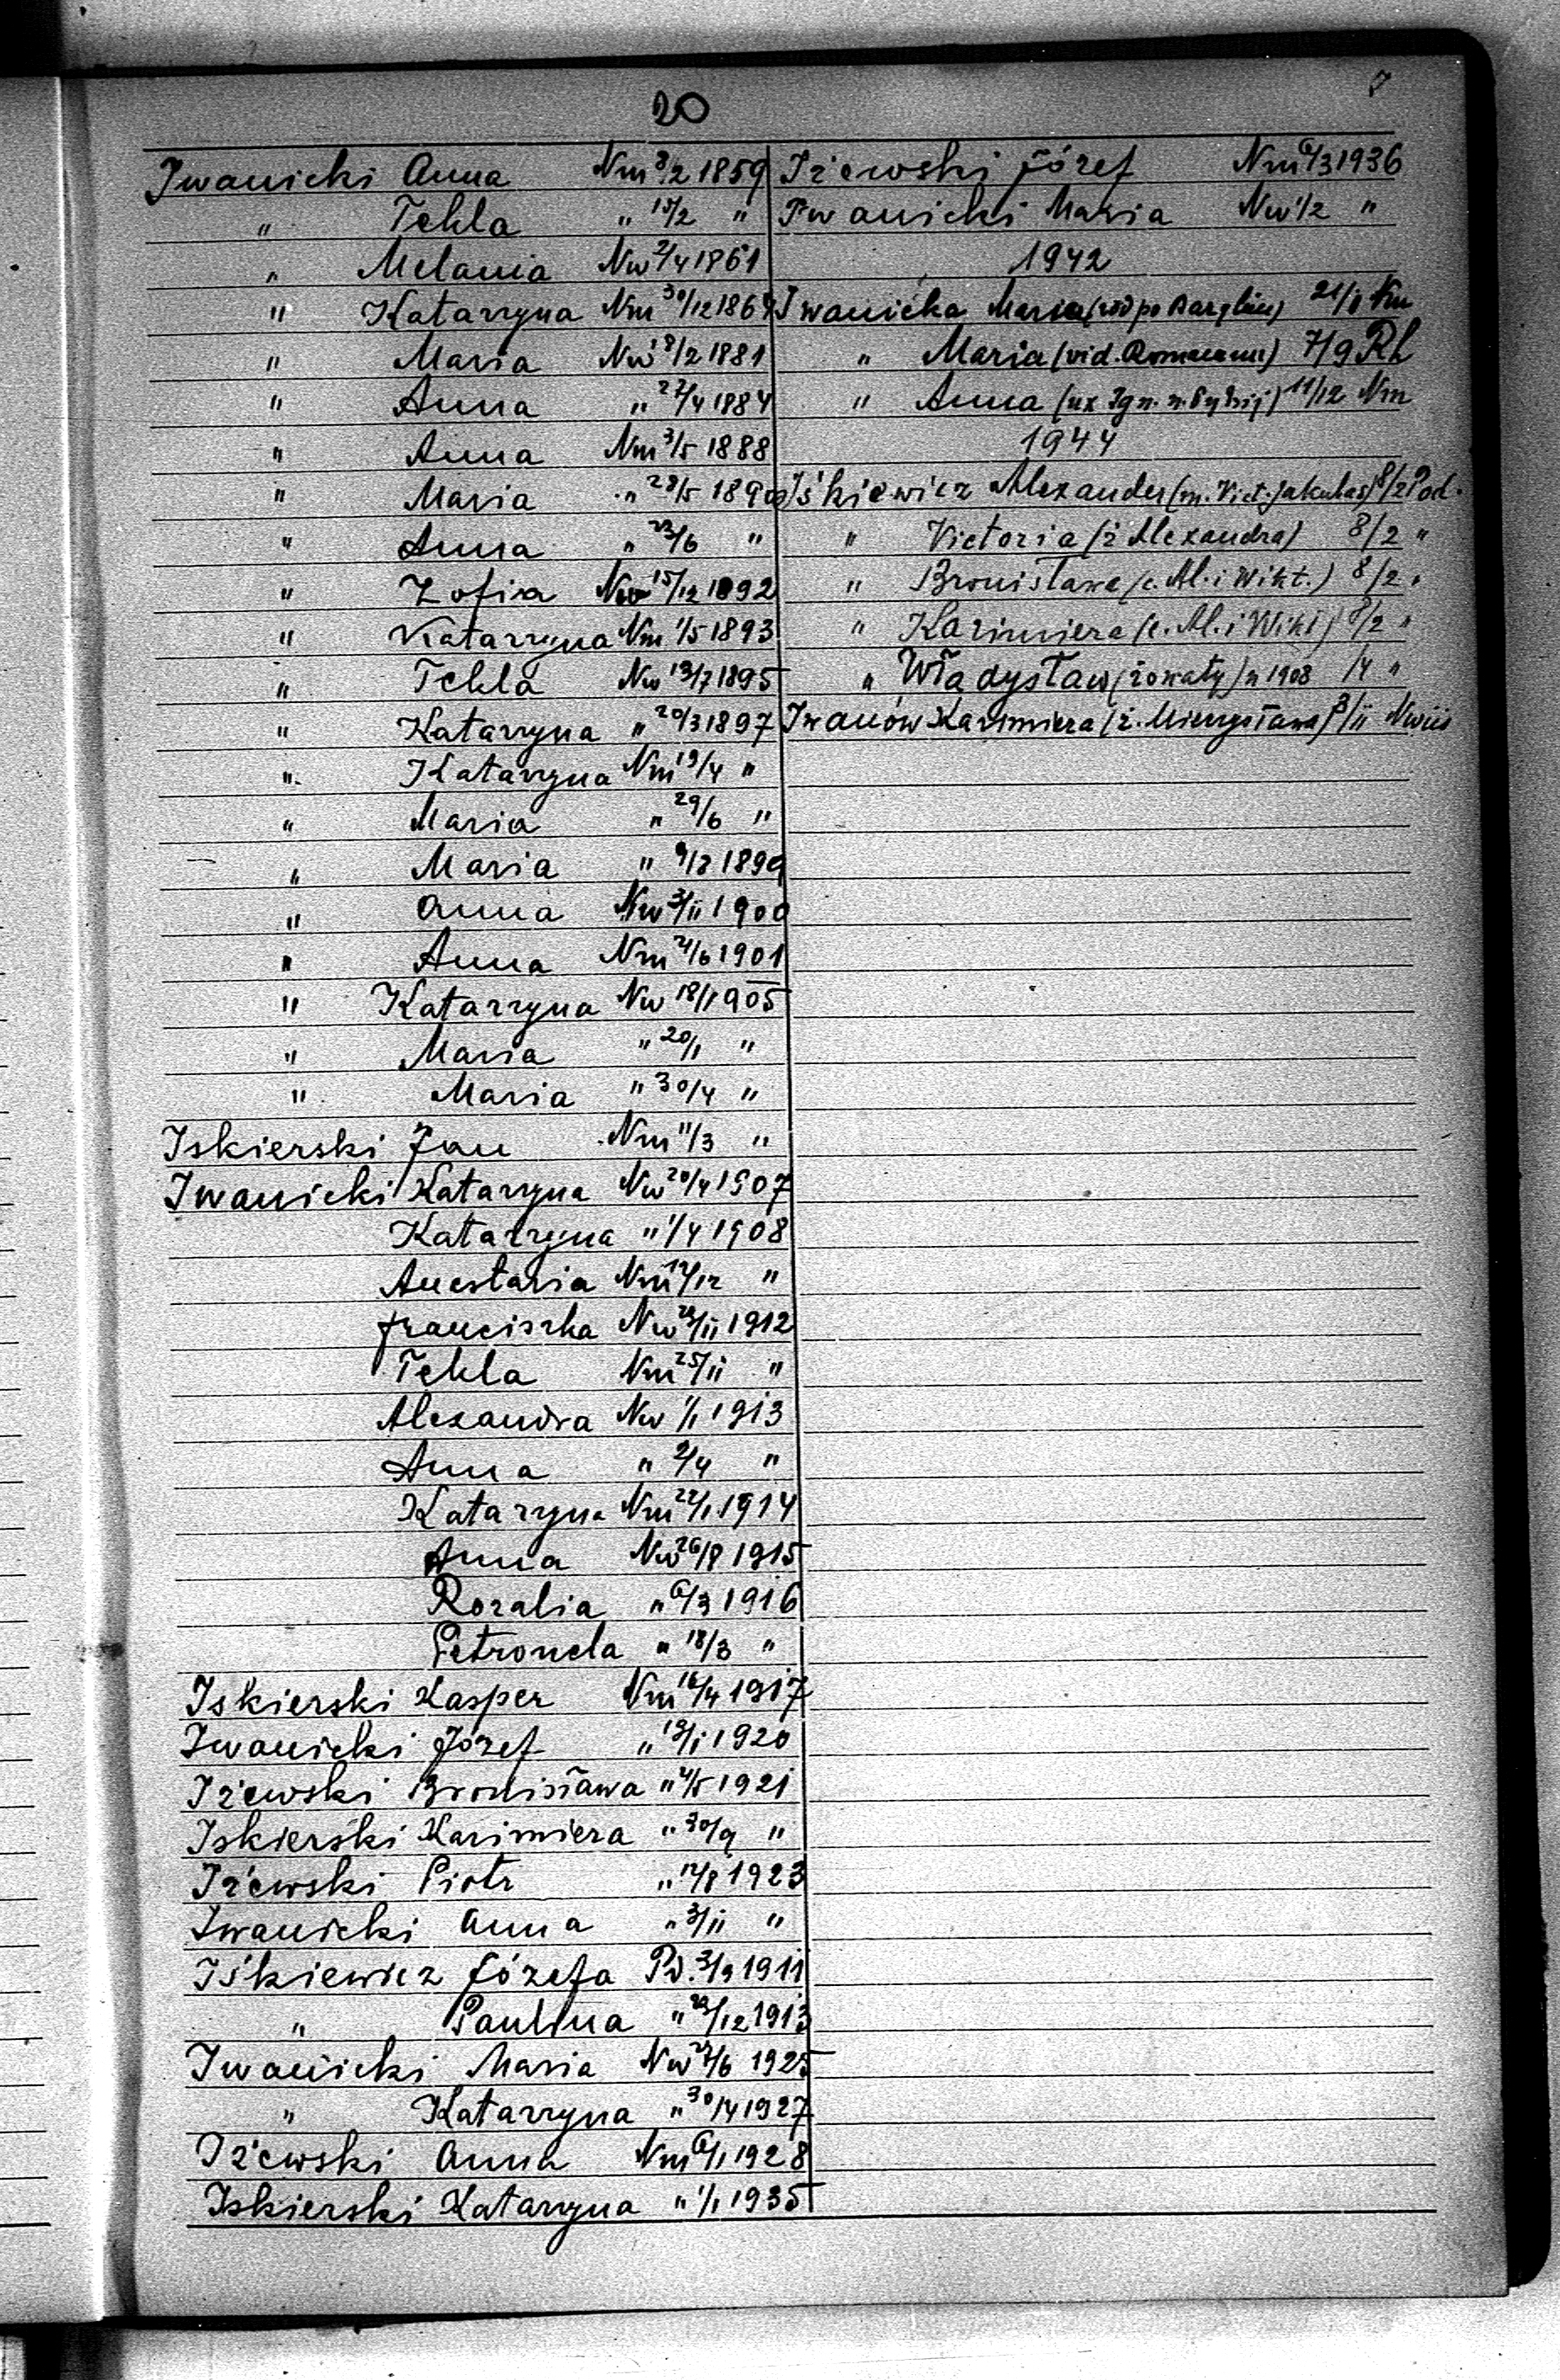 20
I
Iwanicki Anna Nm 8/2 1859
" Tekla " 15/2 "
" Melania Nw 2/4 1861
" Katarzyna Nm 30/12 1864
" Maria Nw 18/2 1881
" Anna " 27/4 1884
" Anna Nm 3/5 1888
" Maria " 28/5 1890
" Anna " 23/6 "
" Zofia Nw 15/12 1892
" Katarzyna Nm 1/5 1893
" Tekla Nw 13/7 1895
" Katarzyna " 20/3 1897
" Katarzyna Nm 19/4 "
" Maria " 29/6 "
" Maria " 9/8 1899
" Anna Nw 3/II 1900
" Anna Nm 4/6 1901
" Katarzyna Nw 18/1 1905
" Maria " 20/1 "
" Maria " 30/4 "
Iskierski Jan Nm 11/3 "
Iwanicki Katarzyna Nw 20/4 1907
Katarzyna " 1/4 1908
Anestazia Nm 12/12 "
Franciszka Nw 28/II 1912
Tekla Nm 25/II "
Alexandra Nw 1/1 1913
Anna " 2/4 "
Katarzyna Nm 22/1 1914
Anna Nw 26/8 1915
Rozalia " 6/3 1916
Petronela " 18/3 "
Iskierski Kasper Nm 16/4 1917
Iwanicki Józef " 18/1 1920
Iżewski Bronisława " 4/5 1921
Iskierski Kazimiera " 30/9 "
Iżewski Piotr " 12/8 1923
Iwanicki Anna " 3/II "
Iśkiewicz Józefa Pd. 3/9 1911
" Paulina " 29/12 1913
Iwanicki Maria Nw 22/6 1925
" Katarzyna " 30/4 1927
Iżewski Anna Nm 6/1 1928
Iskierski Katarzyna " 1/1 1935
Iżewski Józef Nm 6/3 1936
Iwanicki Maria Nw 1/2 "
1942
Iwanicka Maria (wd po 21/1 Nm
" Maria (vid. 7/9 Rh
" Anna (ux Ign. 11/12 Nm
1944
Iśkiewicz Alexander (m. Vict. Jakubas) 8/2 Pod.
" Victoria (ż Alexandra) 8/2 "
" Bronisława (c. Al. i Wikt.) 8/2 "
" Kazimiera (c. Al. i Wikt) 8/2 "
" Władysław (żonaty) n 1908 /4 "
Iwanów Kazimiera (ż. Mieczysława) 3/II